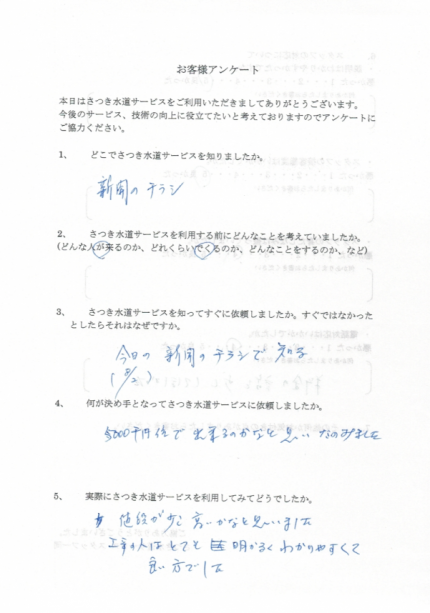 お客様アンケート
本日はさつき水道サービスをご利用いただきましてありがとうございます。
今後のサービス、技術の向上に役立てたいと考えておりますのでアンケートに
ご協力ください。
1、 どこでさつき水道サービスを知りましたか。
新聞のチラシ
2、 さつき水道サービスを利用する前にどんなことを考えていましたか。
(どんな人が来るのか、どれくらいでくるのか、どんなことをするのか、など)
3、 さつき水道サービスを知ってすぐに依頼しましたか。すぐではなかった
としたらそれはなぜですか。
今日の新聞のチラシで知る
4、 何が決め手となってさつき水道サービスに依頼しましたか。
で出来るのかなと思い たのみました
5、 実際にさつき水道サービスを利用してみてどうでしたか。
値段が少し高いかなと思いました
工事の人はとても 明かるくわかりやすくて
良い方でした